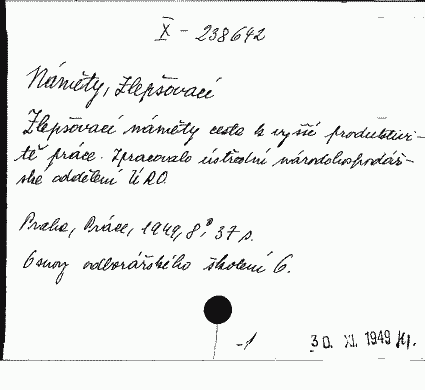 X - 238642
Náměty, Zlepšovací
Zlepšovací náměty cesta k vyšší produktivi-
tě práce. Zpracovalo ústřední národohospodář-
ské oddělení ÚRO.
Praha, Práce, 1949, 8°, 37 s.
Osnovy odborářského školení 6.
-1
30. XI. 1949